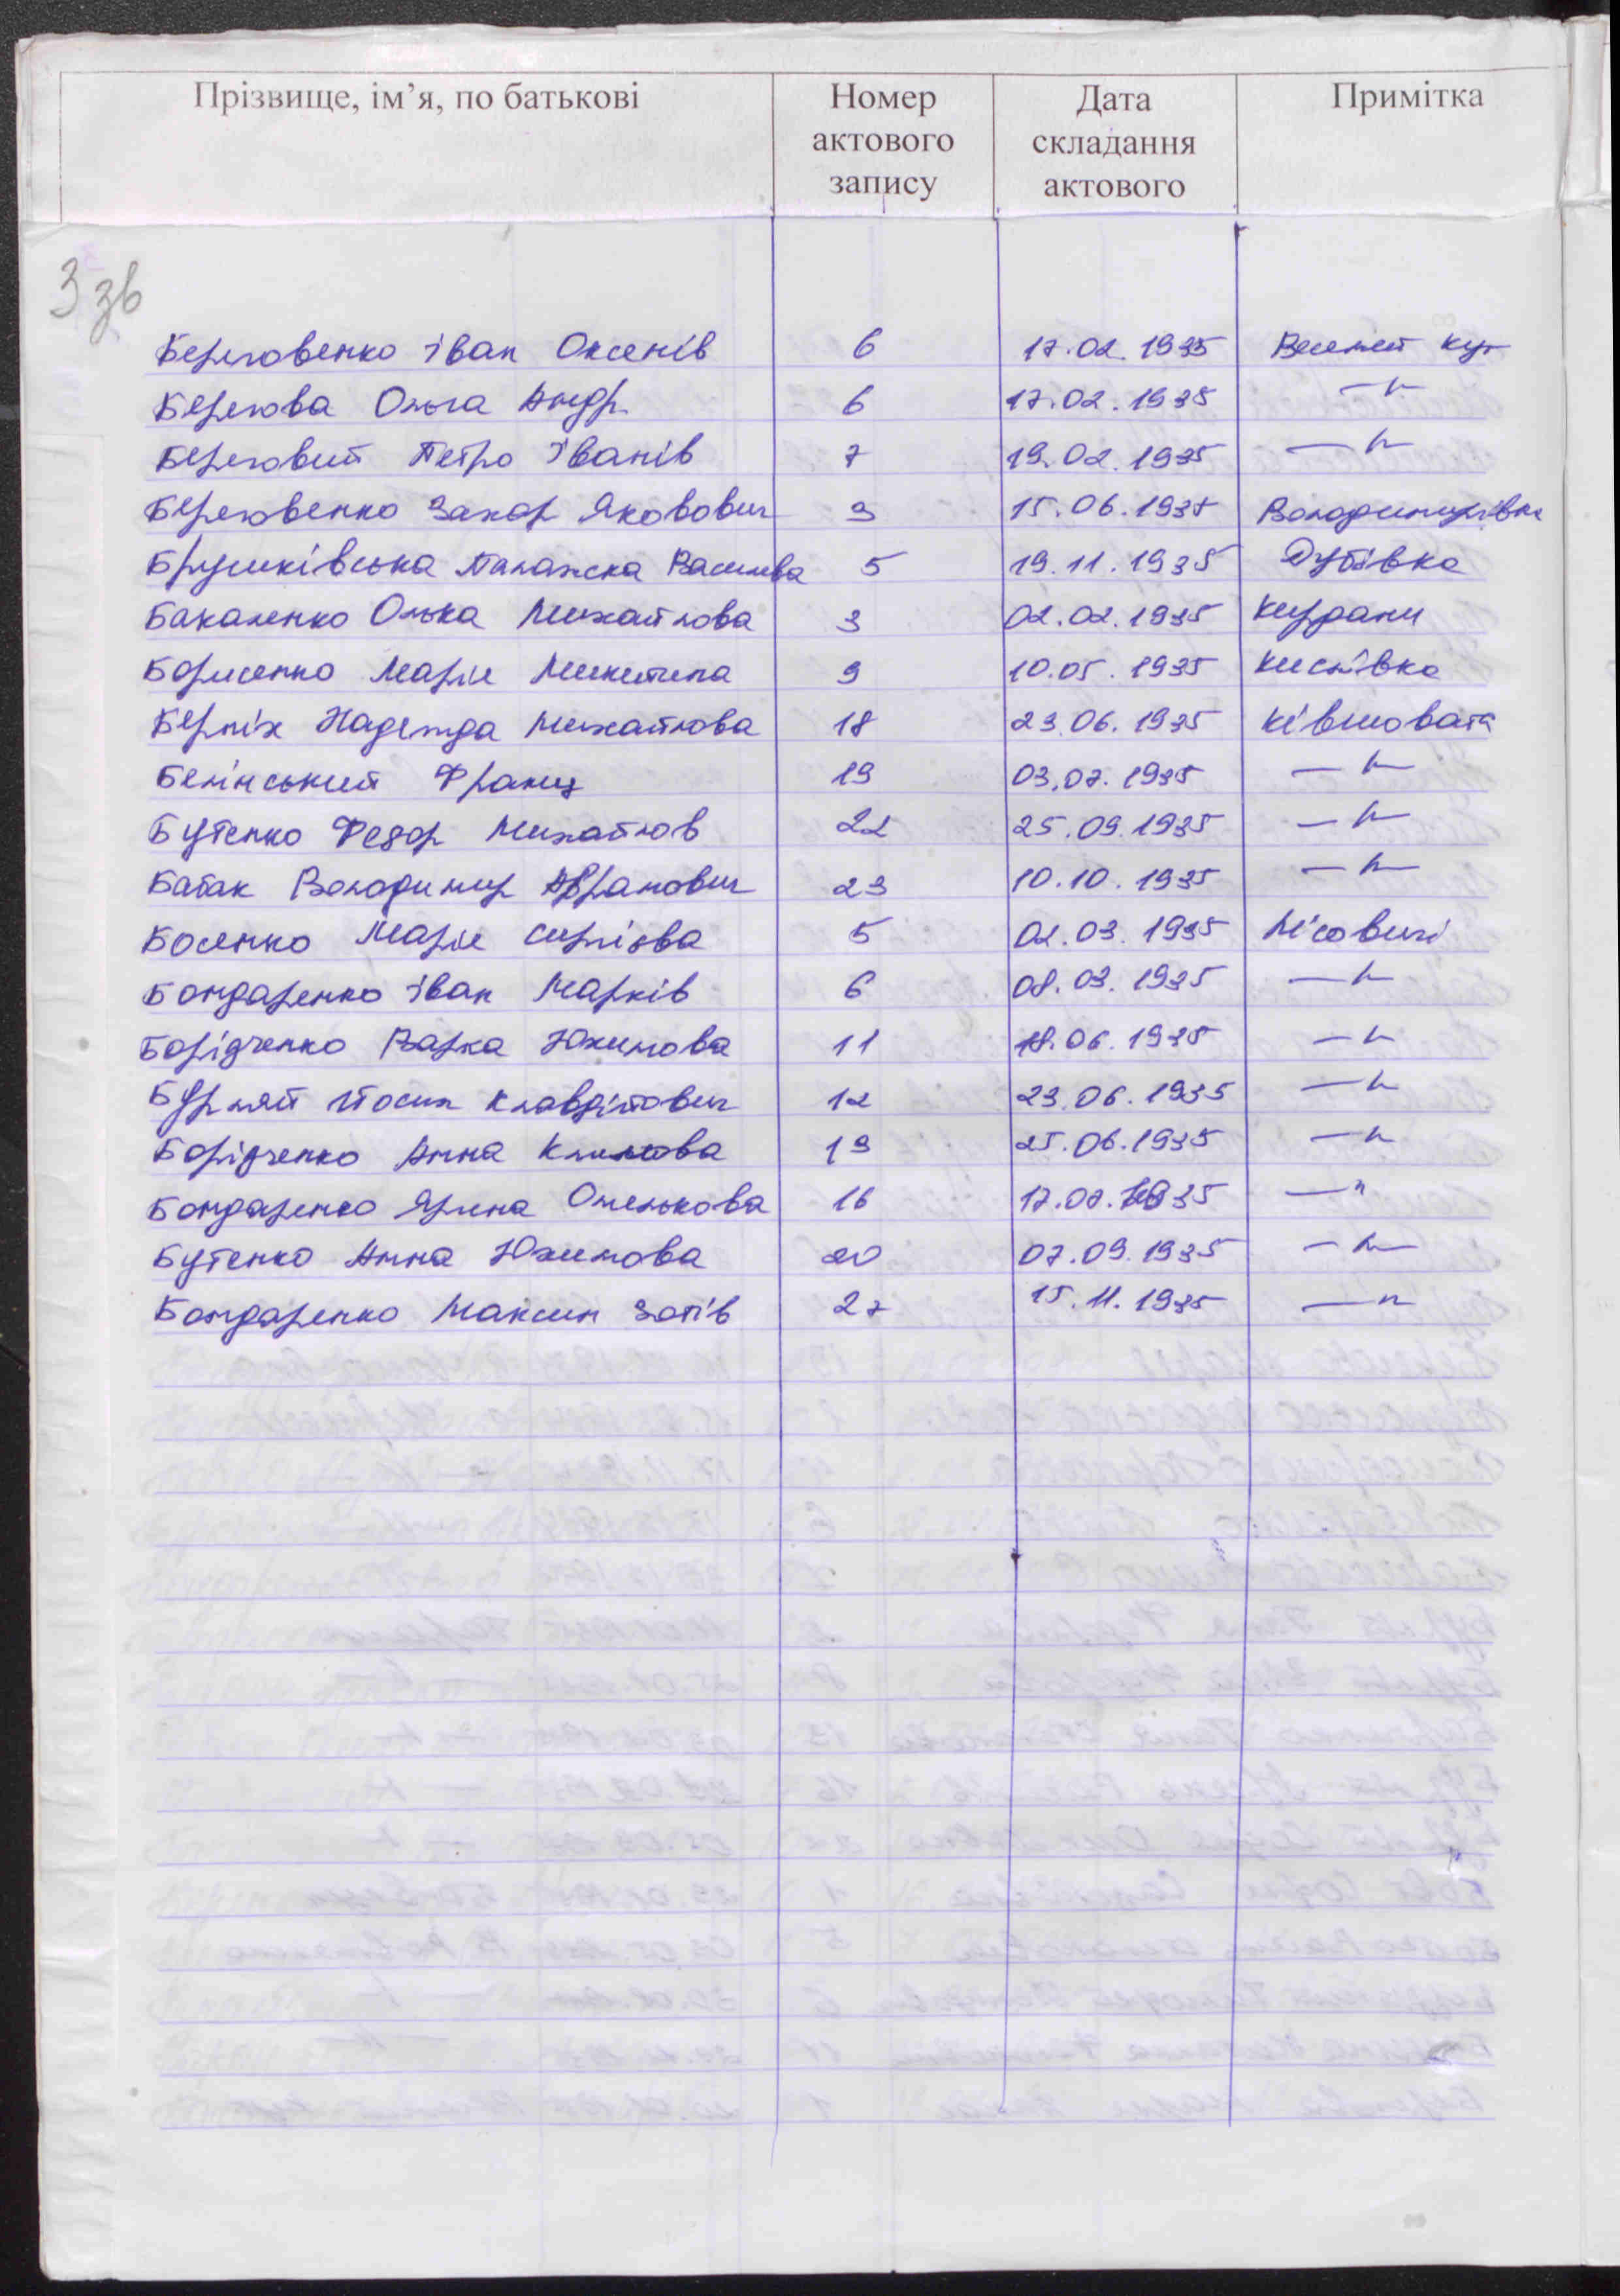 Прізвище, ім’я, по батькові Номер актового запису Дата складання актового Примітка
3 зв
Береговенко Іван Оксенів 6 17.02.1935 Веселий Кут
Берегова Ольга Андр. 6 17.02.1935 —"—
Береговий Петро Іванів 7 19.02.1935 —"—
Береговенко Захар Якович 3 15.06.1935 Володимирівка
Брушківська Палажка Василева 5 19.11.1935 Дубівка
Бакаленко Олька Михайлова 3 02.02.1935 Кирдани
Борисенко Марія Микитина 9 10.05.1935 Кислівка
Берніх Надежда Михайлова 18 23.06.1935 Ківшовата
Белінський Франц 19 03.07.1935 —"—
Бутенко Федор Михайлов 22 25.09.1935 —"—
Батак Володимир Абрамович 23 10.10.1935 —"—
Босенко Марія Сергієва 5 02.03.1935 Лісовичі
Бондаренко Іван Марків 6 08.03.1935 —"—
Борідченко Варка Юхимова 11 18.06.1935 —"—
Бурлай Йосип 12 23.06.1935 —"—
Борідченко Анна Климова 13 25.06.1935 —"—
Бондаренко Ярина Омелькова 16 17.07.1935 —"
Бутенко Анна Юхимова 20 07.09.1935 —"—
Бондаренко Максим Зотів 27 15.11.1935 —"—